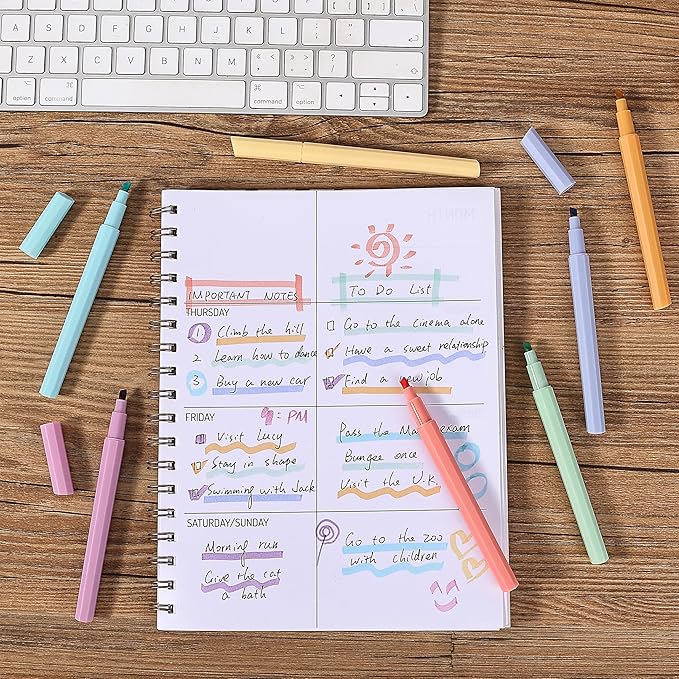 option
command
command
option
IMPORTANT NOTES
THURSDAY
1 Climb the hill
2 Learn how to dance
3 Buy a new car
FRIDAY
9: PM
Visit Lucy
Stay in shape
Swimming with Jack
SATURDAY/SUNDAY
Morning run
Give the cat
a bath
To Do List
Go to the cinema alone
Have a sweet relationship
Find a new job
Pass the exam
Bungee once
Visit the U.K.
Go to the zoo
with children